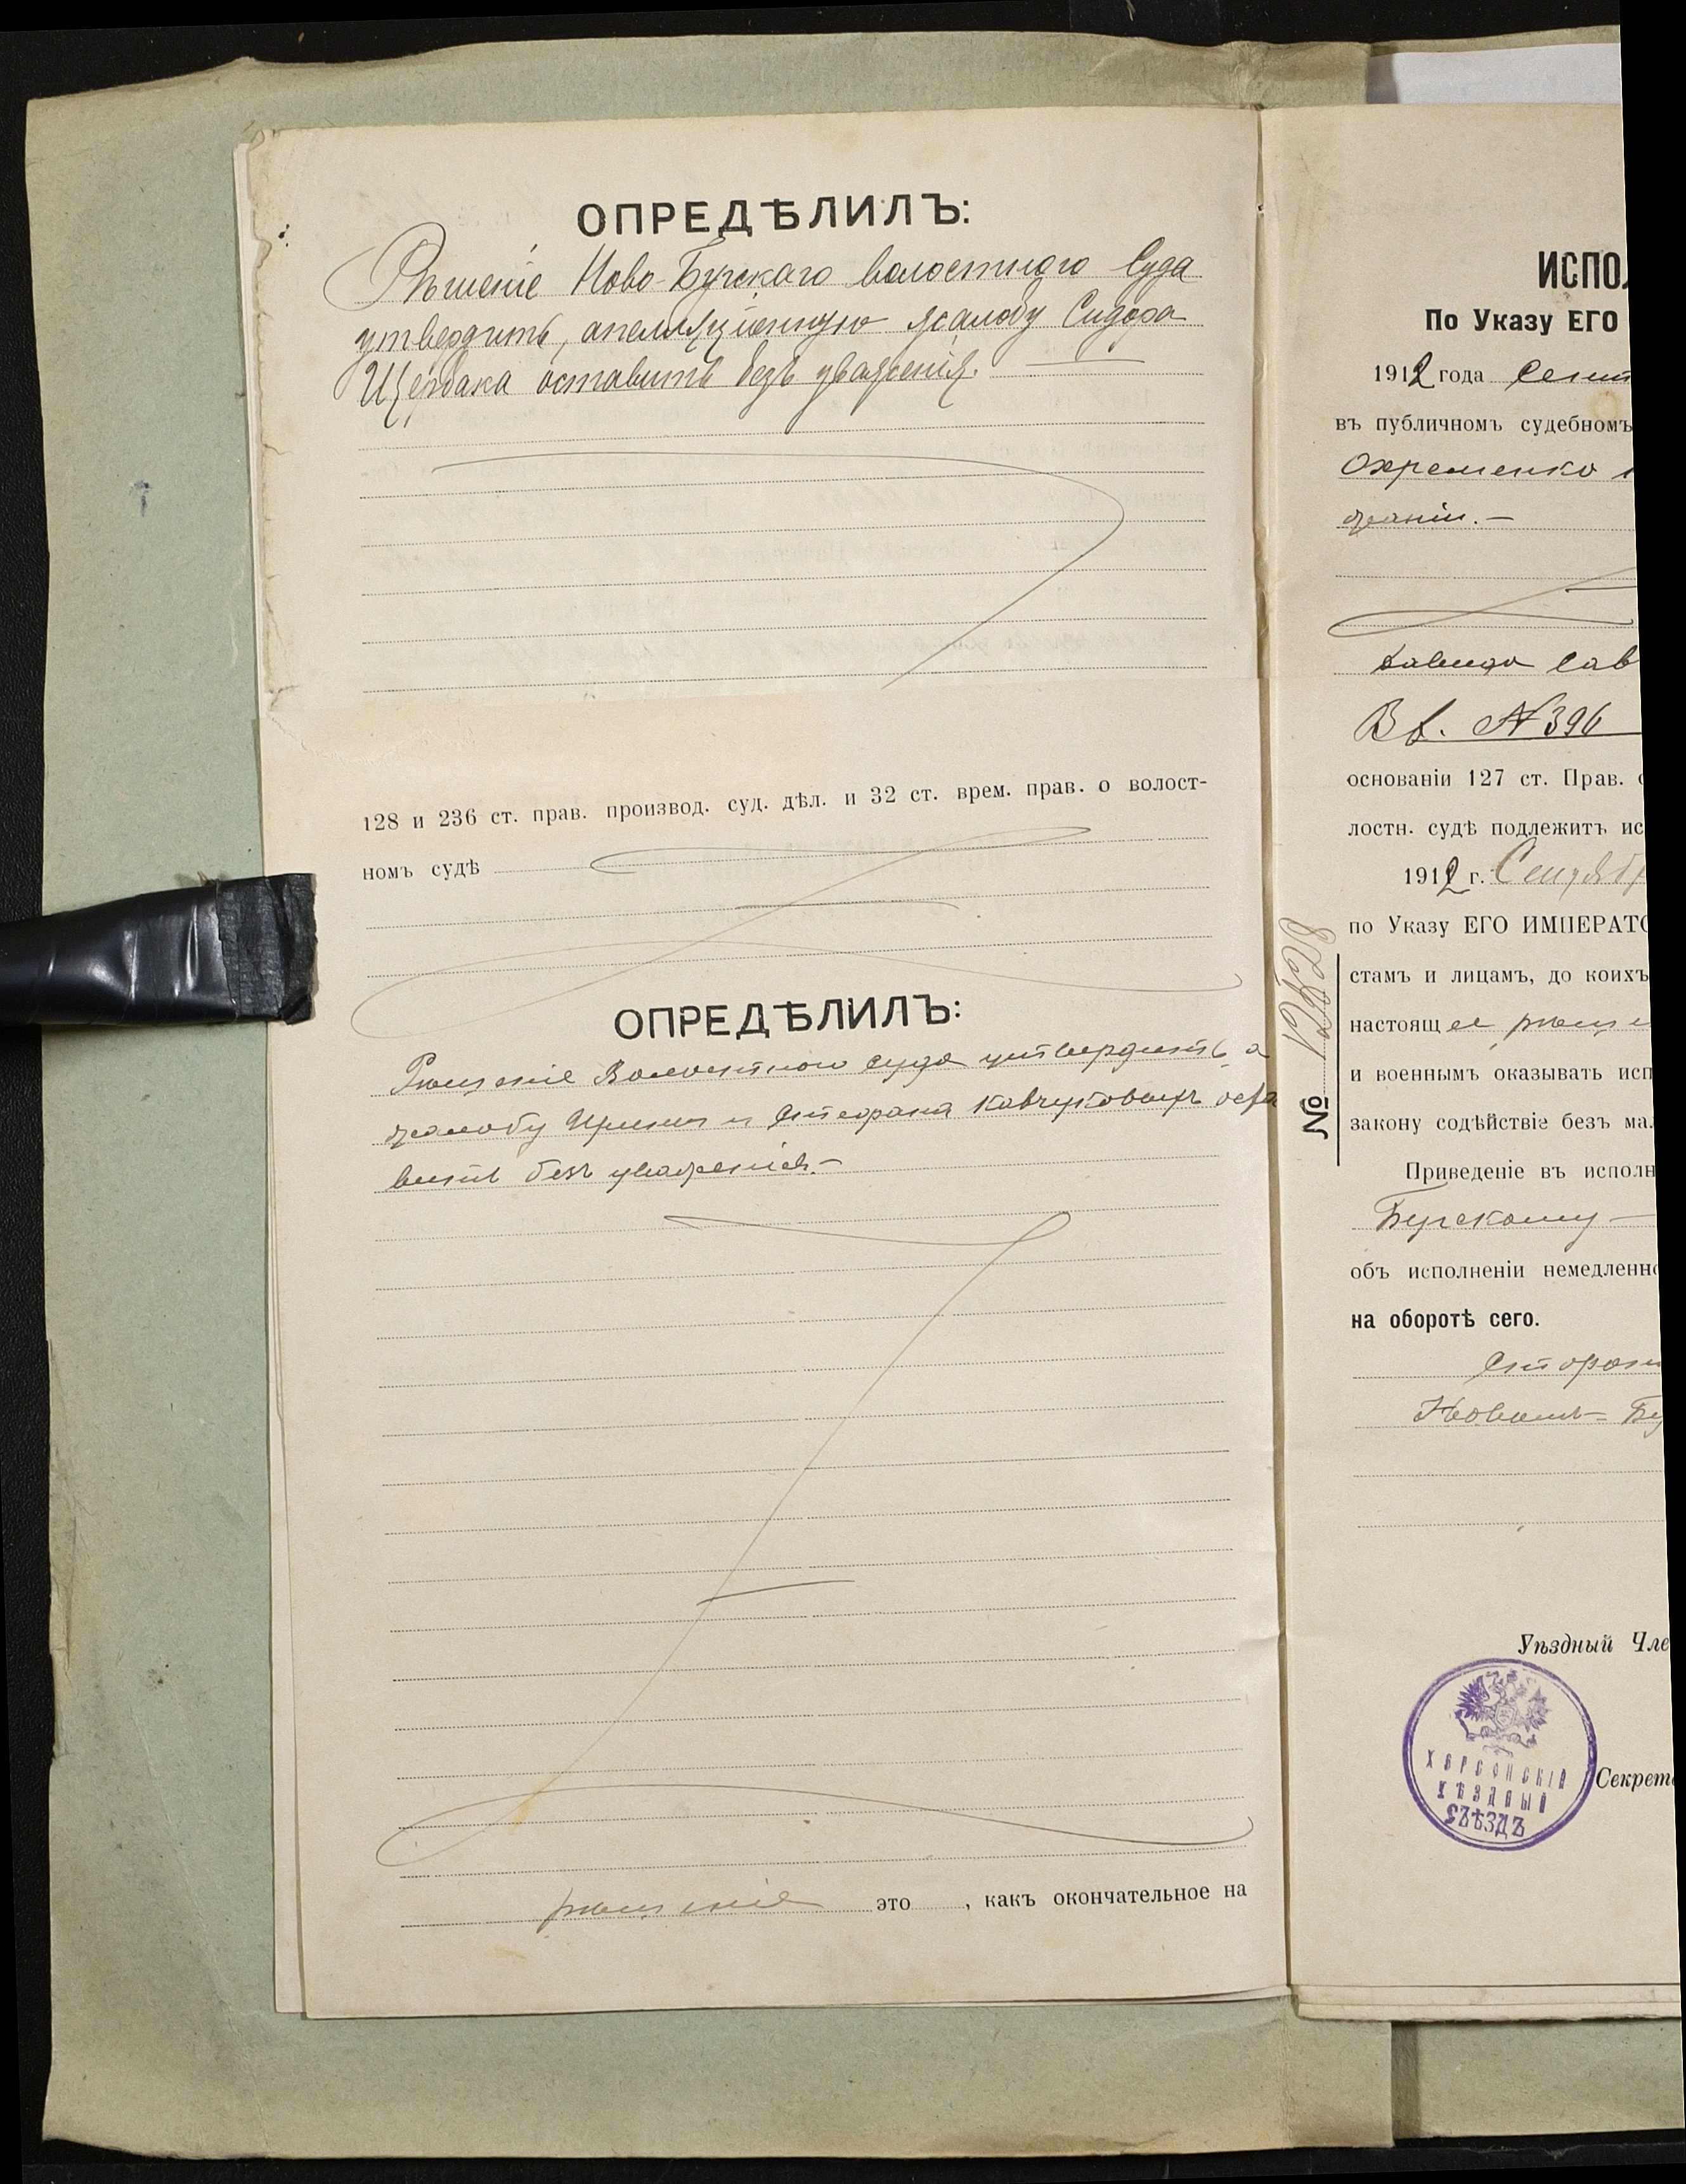 ОПРЕДѢЛИЛЪ:
Рѣшеніе Ново-Бугскаго волостного Суда
утвердить, апелляціонную жалобу Сидора
Щербака оставить безъ уваженія.
128 и 236 ст. прав. производ. суд. дѣл. и 32 ст. врем. прав. о волост-
номъ судѣ
ОПРЕДѢЛИЛЪ:
Рѣшеніе Волостного суда утвердить, а
жалобу Ирины и Стефана Ковчуковыхъ оста
вить безъ уваженія.-
рѣшеніе это , какъ окончательное на
ИСПОЛ
По Указу ЕГО
1912 года Сент
въ публичномъ судебномъ
Охременко
жаніи.-
Давида Сав
В б. №396
основаніи 127 ст. Прав. о
лостн. судѣ подлежитъ ис
1912 г. Сентяб
по Указу ЕГО ИМПЕРАТО
стамъ и лицамъ, до коихъ
настоящее рѣше
и военнымъ оказывать исп
закону содѣйствіе безъ мал
№
Приведеніе въ исполн
Бугскому -
объ исполненіи немедленно
на оборотѣ сего.
Новый- Бу
Уѣздный Чле
ХЕРСОНСКІЙ
УѢЗДНЫЙ
СЪѢЗДЪ
Секрета